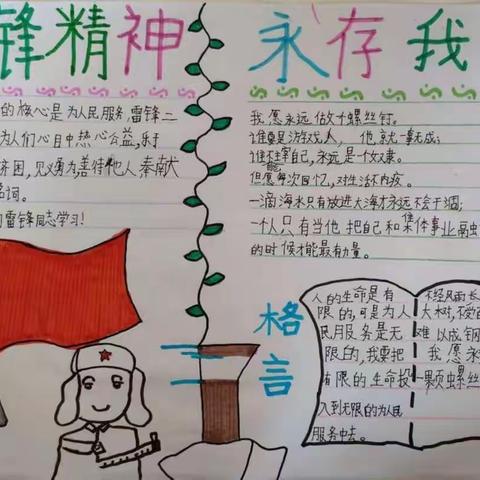 锋精神 永存我
的核心是为人民服务,雷锋二
为人们心目中热心公益,乐于
济困,见义勇为善待他人奉献
名词。
雷锋同志学习!
我愿永远做个螺丝钉。
谁要是游戏人 他就一事无成;
谁不主宰自己,永远是一个奴隶。
但愿每次回忆,对生活不内疚。
一滴海水只有放进大海才永远不会干涸;
一个人只有当他把自己和集体事业融
的时候才能最有力量。
格言
人的生命是有
限的,可是为人
民服务是无
限的,我要把
有限的生命投
入到无限的为人民
服务中去。
不经风雨长
大树,不受百
难以成钢
我愿永
一颗螺丝